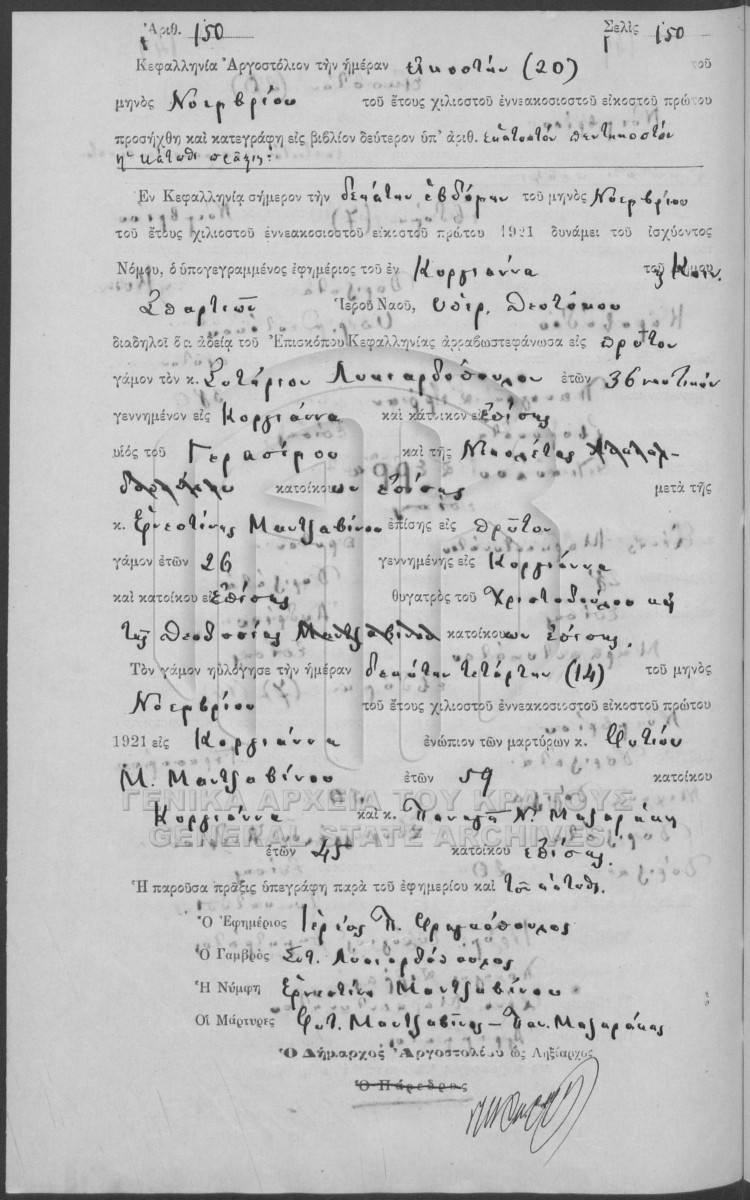 Ἀριθ. 150 Σελὶς 150
Κεφαλληνία Ἀργοστόλιον τὴν ἡμέραν εἰκοστὴν (20) τοῦ
μηνὸς Νοεμβρίου τοῦ ἔτους χιλιοστοῦ ἐννεακοσιοστοῦ εἰκοστοῦ πρώτου
προσήχθη καὶ κατεγράφη εἰς βιβλίον δεύτερον ὑπ' ἀριθ. ἑκατοστὸν πεντηκοστὸν
ἡ κάτωθι πρᾶξις:
Ἐν Κεφαλληνίᾳ σήμερον τὴν δεκάτην ἑβδόμην τοῦ μηνὸς Νοεμβρίου
τοῦ ἔτους χιλιοστοῦ ἐννεακοσιοστοῦ εἰκοστοῦ πρώτου 1921 δυνάμει τοῦ ἰσχύοντος
Νόμου, ὁ ὑπογεγραμμένος ἐφημέριος τοῦ ἐν Κοργιάννα Κοιν.
Σπαρτιῶν Ἱεροῦ Ναοῦ, Ὑπερ. Θεοτόκου
διαδηλοῖ ὅτι ἀδείᾳ τοῦ Ἐπισκόπου Κεφαλληνίας ἀρραβωστεφάνωσα εἰς πρῶτον
γάμον τὸν κ. Σωτήριον Λυκιαρδόπουλον ἐτῶν 36 ναυτικὸν
γεννημένον εἰς Κοργιάννα καὶ κάτοικον εἰς ἐπίσης
υἱὸς τοῦ Γερασίμου καὶ τῆς Νικολέτας
κατοίκου ων ἐπίσης μετὰ τῆς
κ. Ἐρνεστίνης Μαντζαβίνου ἐπίσης εἰς πρῶτον
γάμον ἐτῶν 26 γεννημένης εἰς Κοργιάννα
καὶ κατοίκου εἰς ἐπίσης θυγατρὸς τοῦ Χριστοδούλου καὶ
τῆς Θεοδοσίας Μαντζαβίνου κατοίκου ων ἐπίσης.
Τὸν γάμον ηὐλόγησε τὴν ἡμέραν δεκάτην τετάρτην (14) τοῦ μηνὸς
Νοεμβρίου τοῦ ἔτους χιλιοστοῦ ἐννεακοσιοστοῦ εἰκοστοῦ πρώτου
1921 εἰς Κοργιάννα ἐνώπιον τῶν μαρτύρων κ. Φωτίου
Μ. Μαντζαβίνου ἐτῶν 59 κατοίκου
Κοργιάννα καὶ κ. Παναγῆ Ν. Μαζαράκη
ΓΕΝΙΚΑ ΑΡΧΕΙΑ ΤΟΥ ΚΡΑΤΟΥΣ
GENERAL STATE ARCHIVES
ἐτῶν 45 κατοίκου ἐπίσης.
Ἡ παροῦσα πρᾶξις ὑπεγράφη παρὰ τοῦ ἐφημερίου καὶ τῶν κάτωθι.
Ὁ Ἐφημέριος Ἱερεὺς Π. Φραγκόπουλος
Ὁ Γαμβρὸς Σωτ. Λυκιαρδόπουλος
Ἡ Νύμφη Ἐρνεστίνα Μαντζαβίνου
Οἱ Μάρτυρες Φωτ. Μαντζαβῖνος – Παν. Μαζαράκης
Ὁ Δήμαρχος Ἀργοστολίου ὡς Ληξίαρχος
Ὁ Πάρεδρος